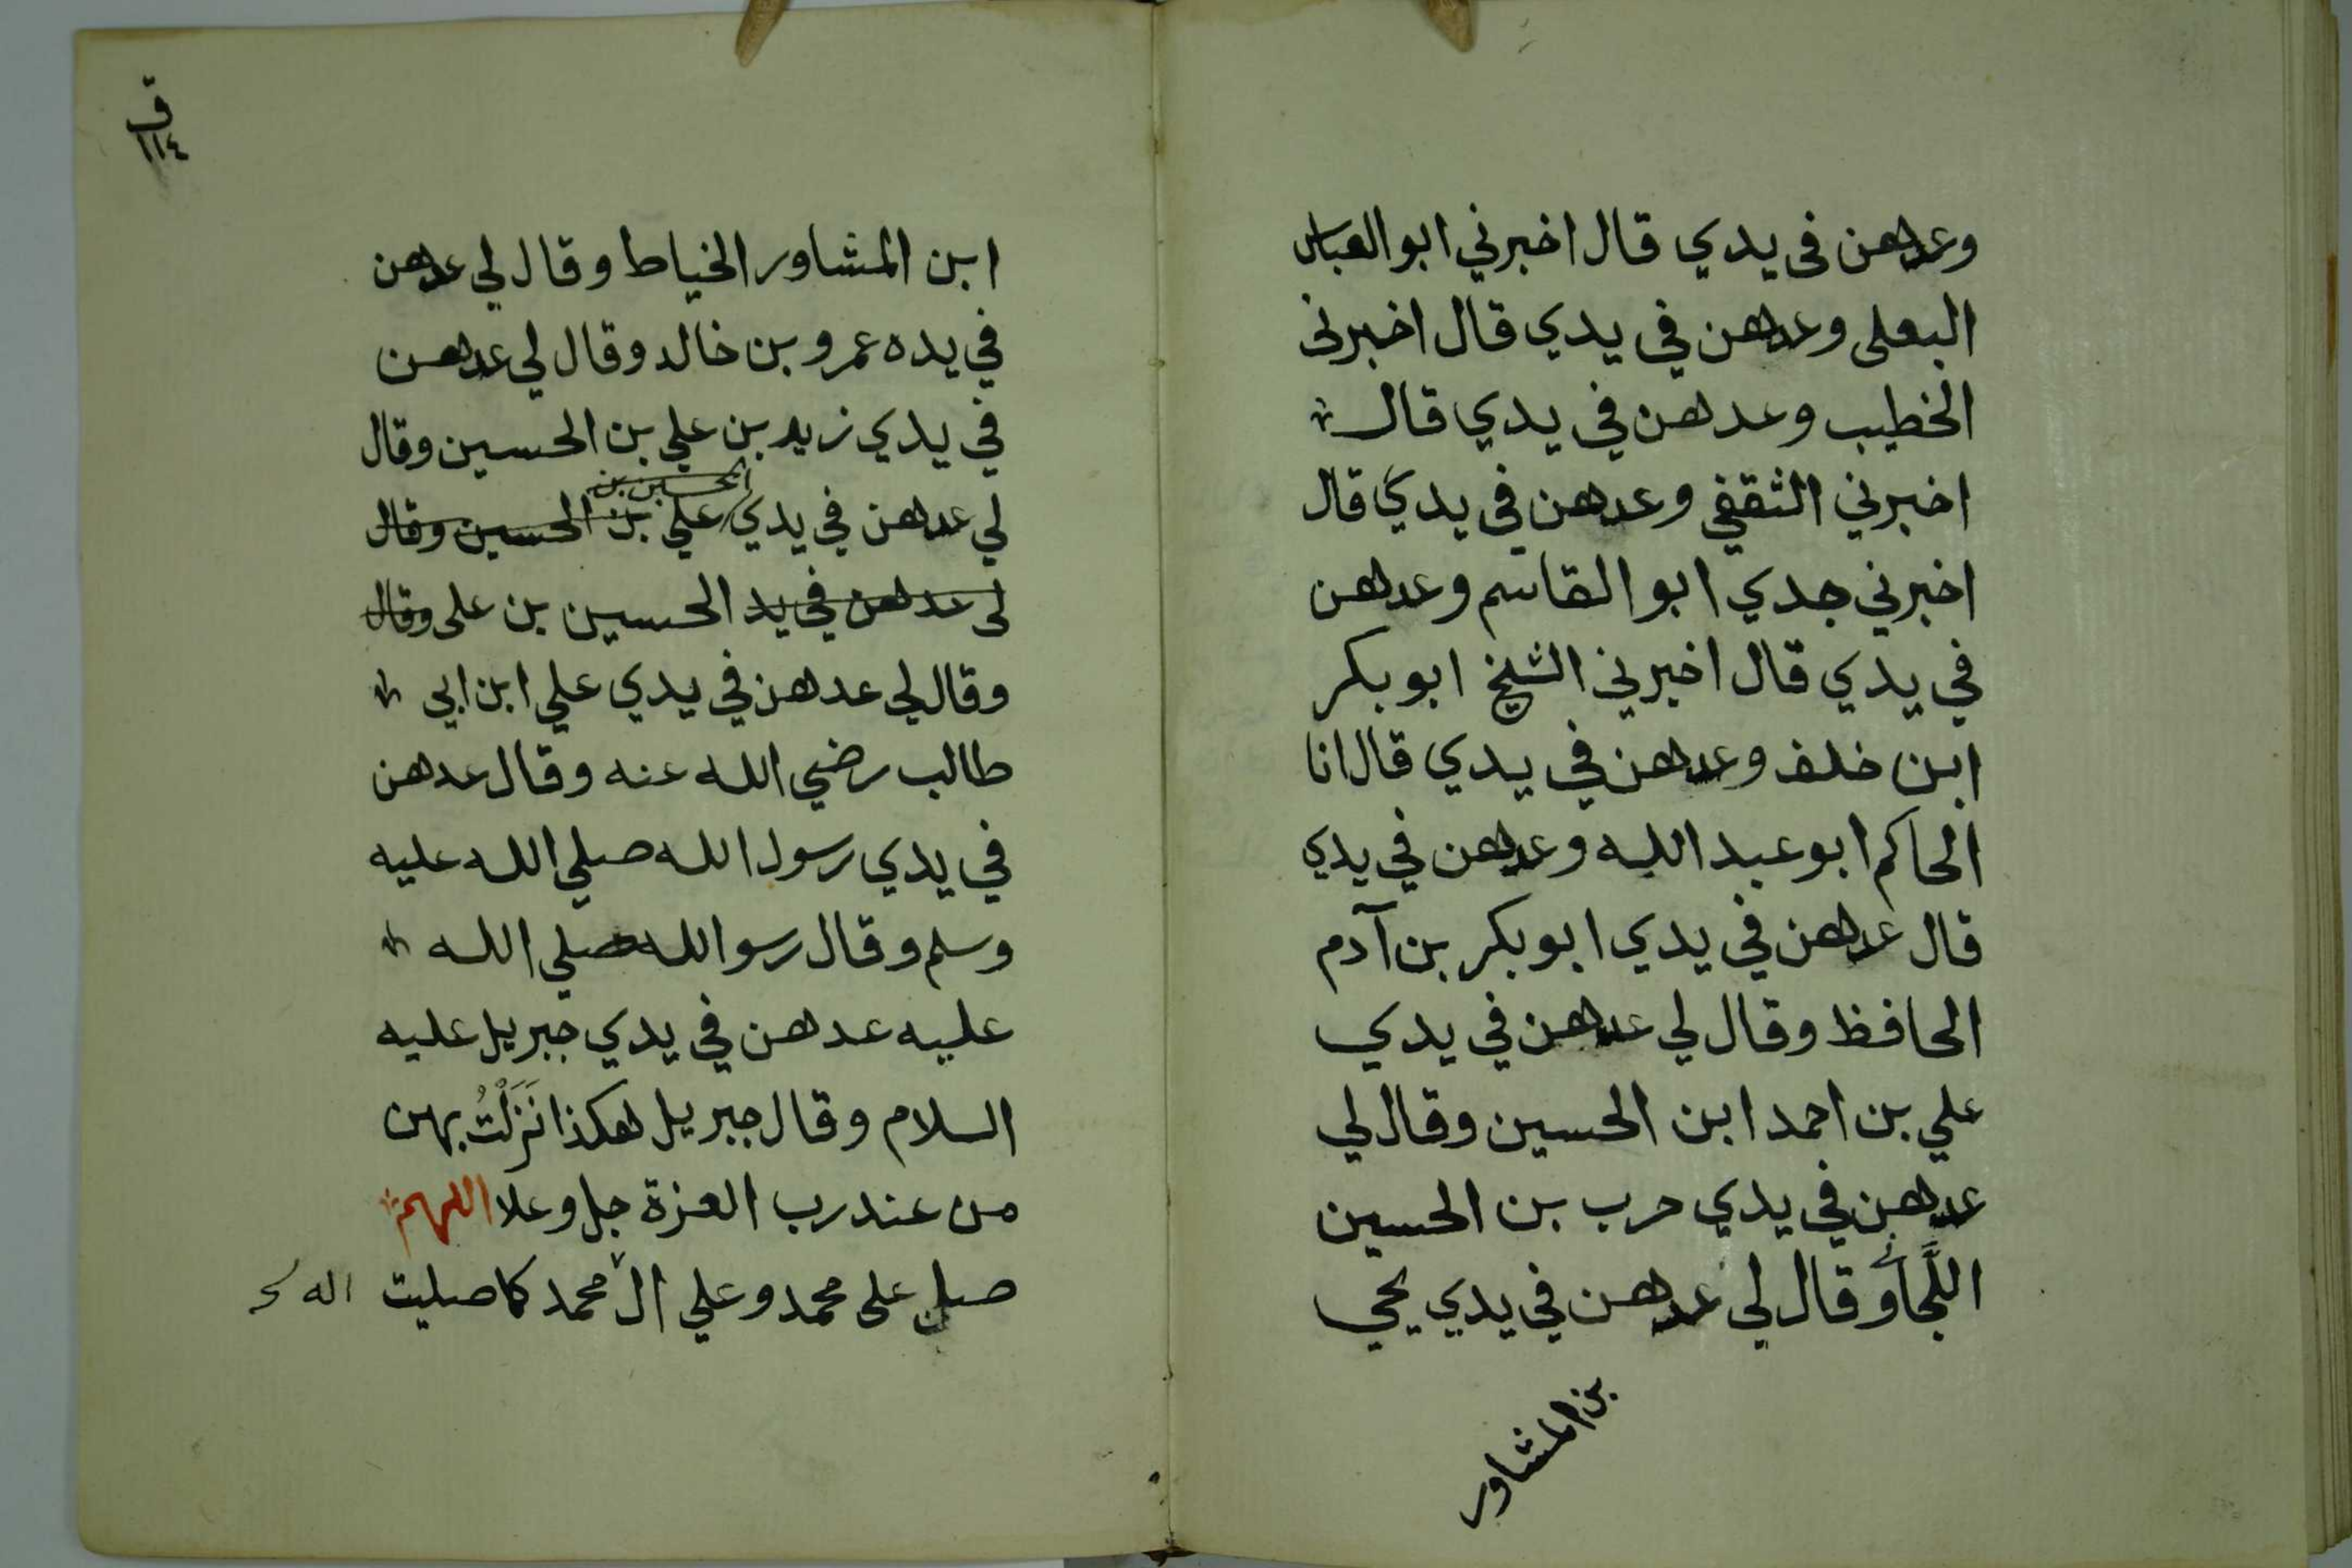 وعدهن في يدي قال اخبرني ابو العباس
البعلى وعدهن في يدي قال اخبرنى
الخطيب وعدهن في يدي قال
اخبرني الثقفي وعدهن في يدي قال
اخبرني جدي ابو القاسم وعدهن
في يدي قال اخبرني الشيخ ابو بكر
ابن خلف وعدهن في يدي قال انا
الحاكم ابو عبد الله وعدهن في يدي
قال عدهن في يدي ابو بكر بن آدم
الحافظ وقال لي عدهن في يدي
علي بن احمد ابن الحسين وقال لي
عدهن في يدي حرب بن الحسين
اللَّجاَّ وقال لي عدهن في يدي يحي
بن المشاور
ق
١١٤
ابن المشاور الخياط وقال لي عدهن
في يده عمرو بن خالد وقال لي عدهن
في يدي زيد بن علي بن الحسين وقال
الحسين بن
لي عدهن في يدي علي بن الحسين وقال
لى عدهن في يد الحسين بن على وقال
وقال لي عدهن في يدي علي ابن ابي
طالب رضي الله عنه وقال عدهن
في يدي رسول الله صلي الله عليه
وسلم وقال رسو الله صلي الله
عليه عدهن في يدي جبريل عليه
السلام وقال جبريل هكذا نَزَلْتُ بهن
من عند رب العزة جل وعلا اللهم
صل على محمد وعلي ال محمد كما صليت